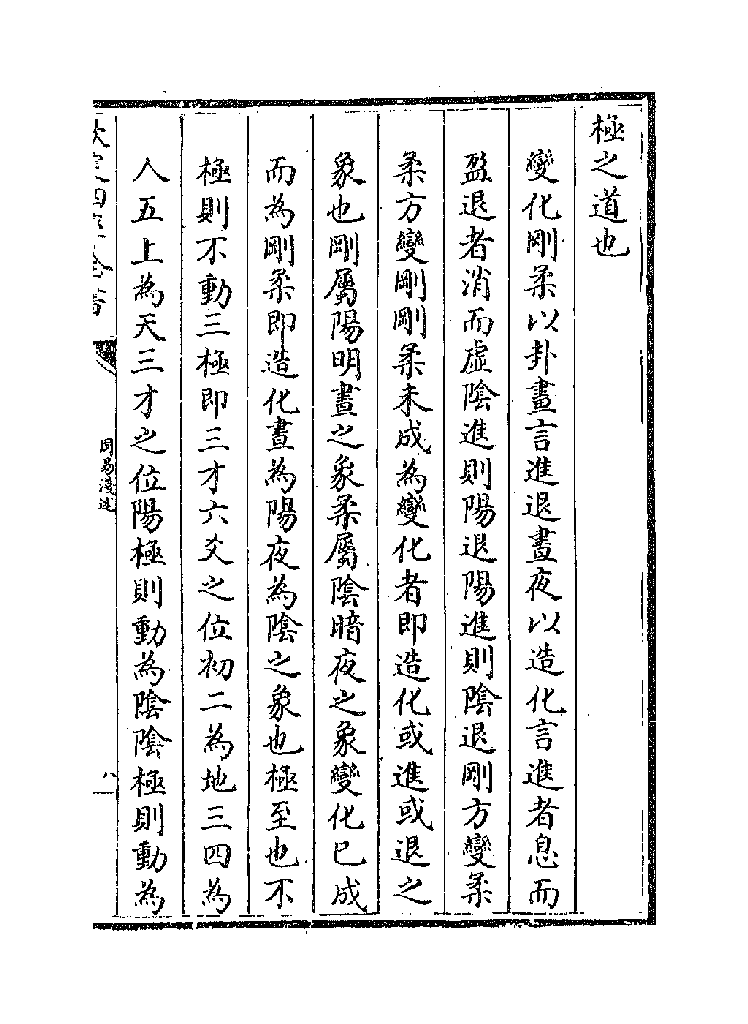 極之道也
變化剛柔以卦畫言進退晝夜以造化言進者息而
盈退者消而虛陰進則陽退陽進則陰退剛方變柔
柔方變剛剛柔未成為變化者即造化或進或退之
象也剛屬陽明晝之象柔屬陰暗夜之象變化已成
而為剛柔即造化晝為陽夜為陰之象也極至也不
極則不動三極即三才六爻之位初二為地三四為
人五上為天三才之位陽極則動為陰陰極則動為
欽定四庫全書
周易淺述
八